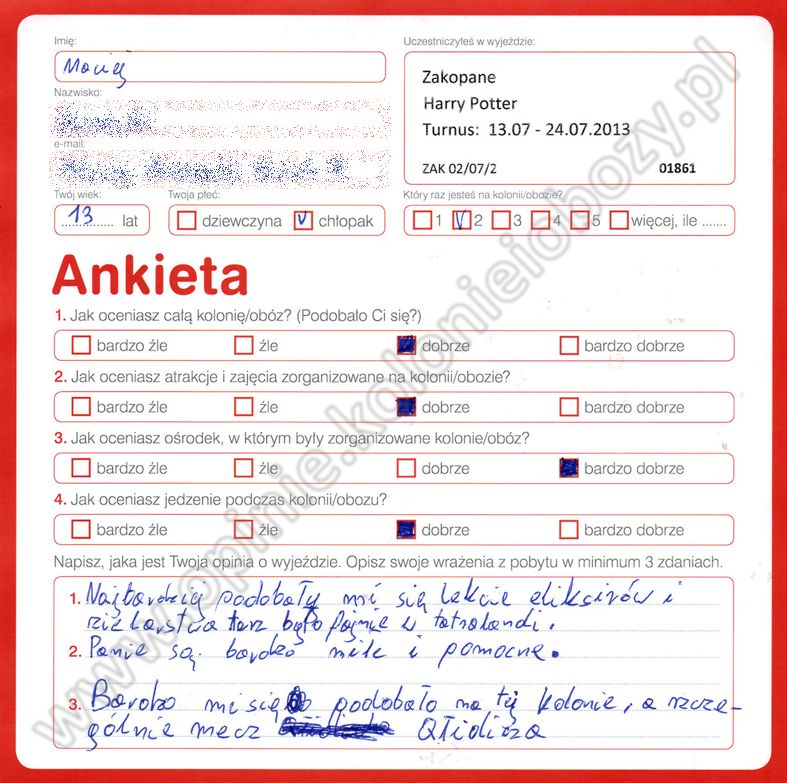 Imię:
Maciej
Nazwisko:
e-mail:
Twój wiek:
13 lat
Twoja płeć:
dziewczyna chłopak
Uczestniczyłeś w wyjeździe:
Zakopane
Harry Potter
Turnus: 13.07 - 24.07.2013
ZAK 02/07/2 01861
Który raz jesteś na kolonii/obozie?
1 2 3 4 5 więcej, ile .......
Ankieta
1. Jak oceniasz całą kolonię/obóz? (Podobało Ci się?)
bardzo źle źle dobrze bardzo dobrze
2. Jak oceniasz atrakcje i zajęcia zorganizowane na kolonii/obozie?
bardzo źle źle dobrze bardzo dobrze
3. Jak oceniasz ośrodek, w którym były zorganizowane kolonie/obóz?
bardzo źle źle dobrze bardzo dobrze
4. Jak oceniasz jedzenie podczas kolonii/obozu?
bardzo źle źle dobrze bardzo dobrze
Napisz, jaka jest Twoja opinia o wyjeździe. Opisz swoje wrażenia z pobytu w minimum 3 zdaniach.
1. Najbardziej podobały mi się lekcie eliksirów i
było fajnie w tatralandi.
2. Panie są bardzo miłe i pomocne.
3. Bardzo mi się podobało na tej kolonie, a szcze-
gólnie mecz Qłidicza
www.opinie.kolonieiobozy.pl